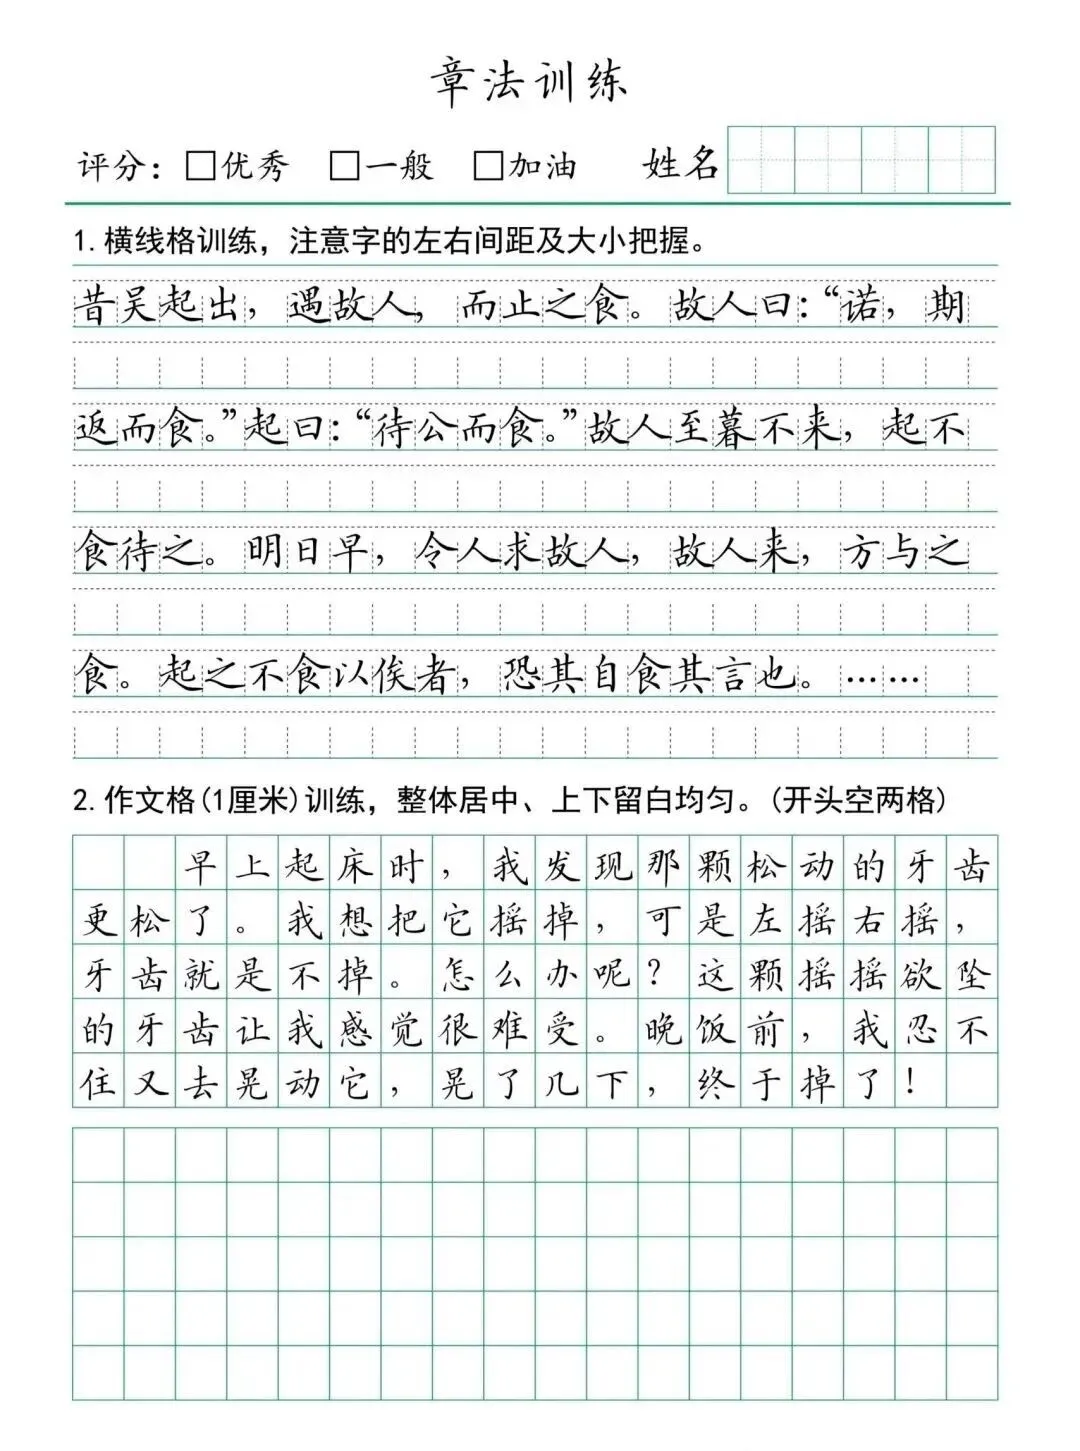 章法训练
评分：□优秀 □一般 □加油 姓名
1.横线格训练，注意字的左右间距及大小把握。
昔吴起出，遇故人，而止之食。故人曰：“诺，期
返而食。”起曰：“待公而食。”故人至暮不来，起不
食待之。明日早，令人求故人，故人来，方与之
食。起之不食以俟者，恐其自食其言也。……
2.作文格(1厘米)训练，整体居中、上下留白均匀。(开头空两格)
早上起床时，我发现那颗松动的牙齿
更松了。我想把它摇掉，可是左摇右摇，
牙齿就是不掉。怎么办呢？这颗摇摇欲坠
的牙齿让我感觉很难受。晚饭前，我忍不
住又去晃动它，晃了几下，终于掉了！